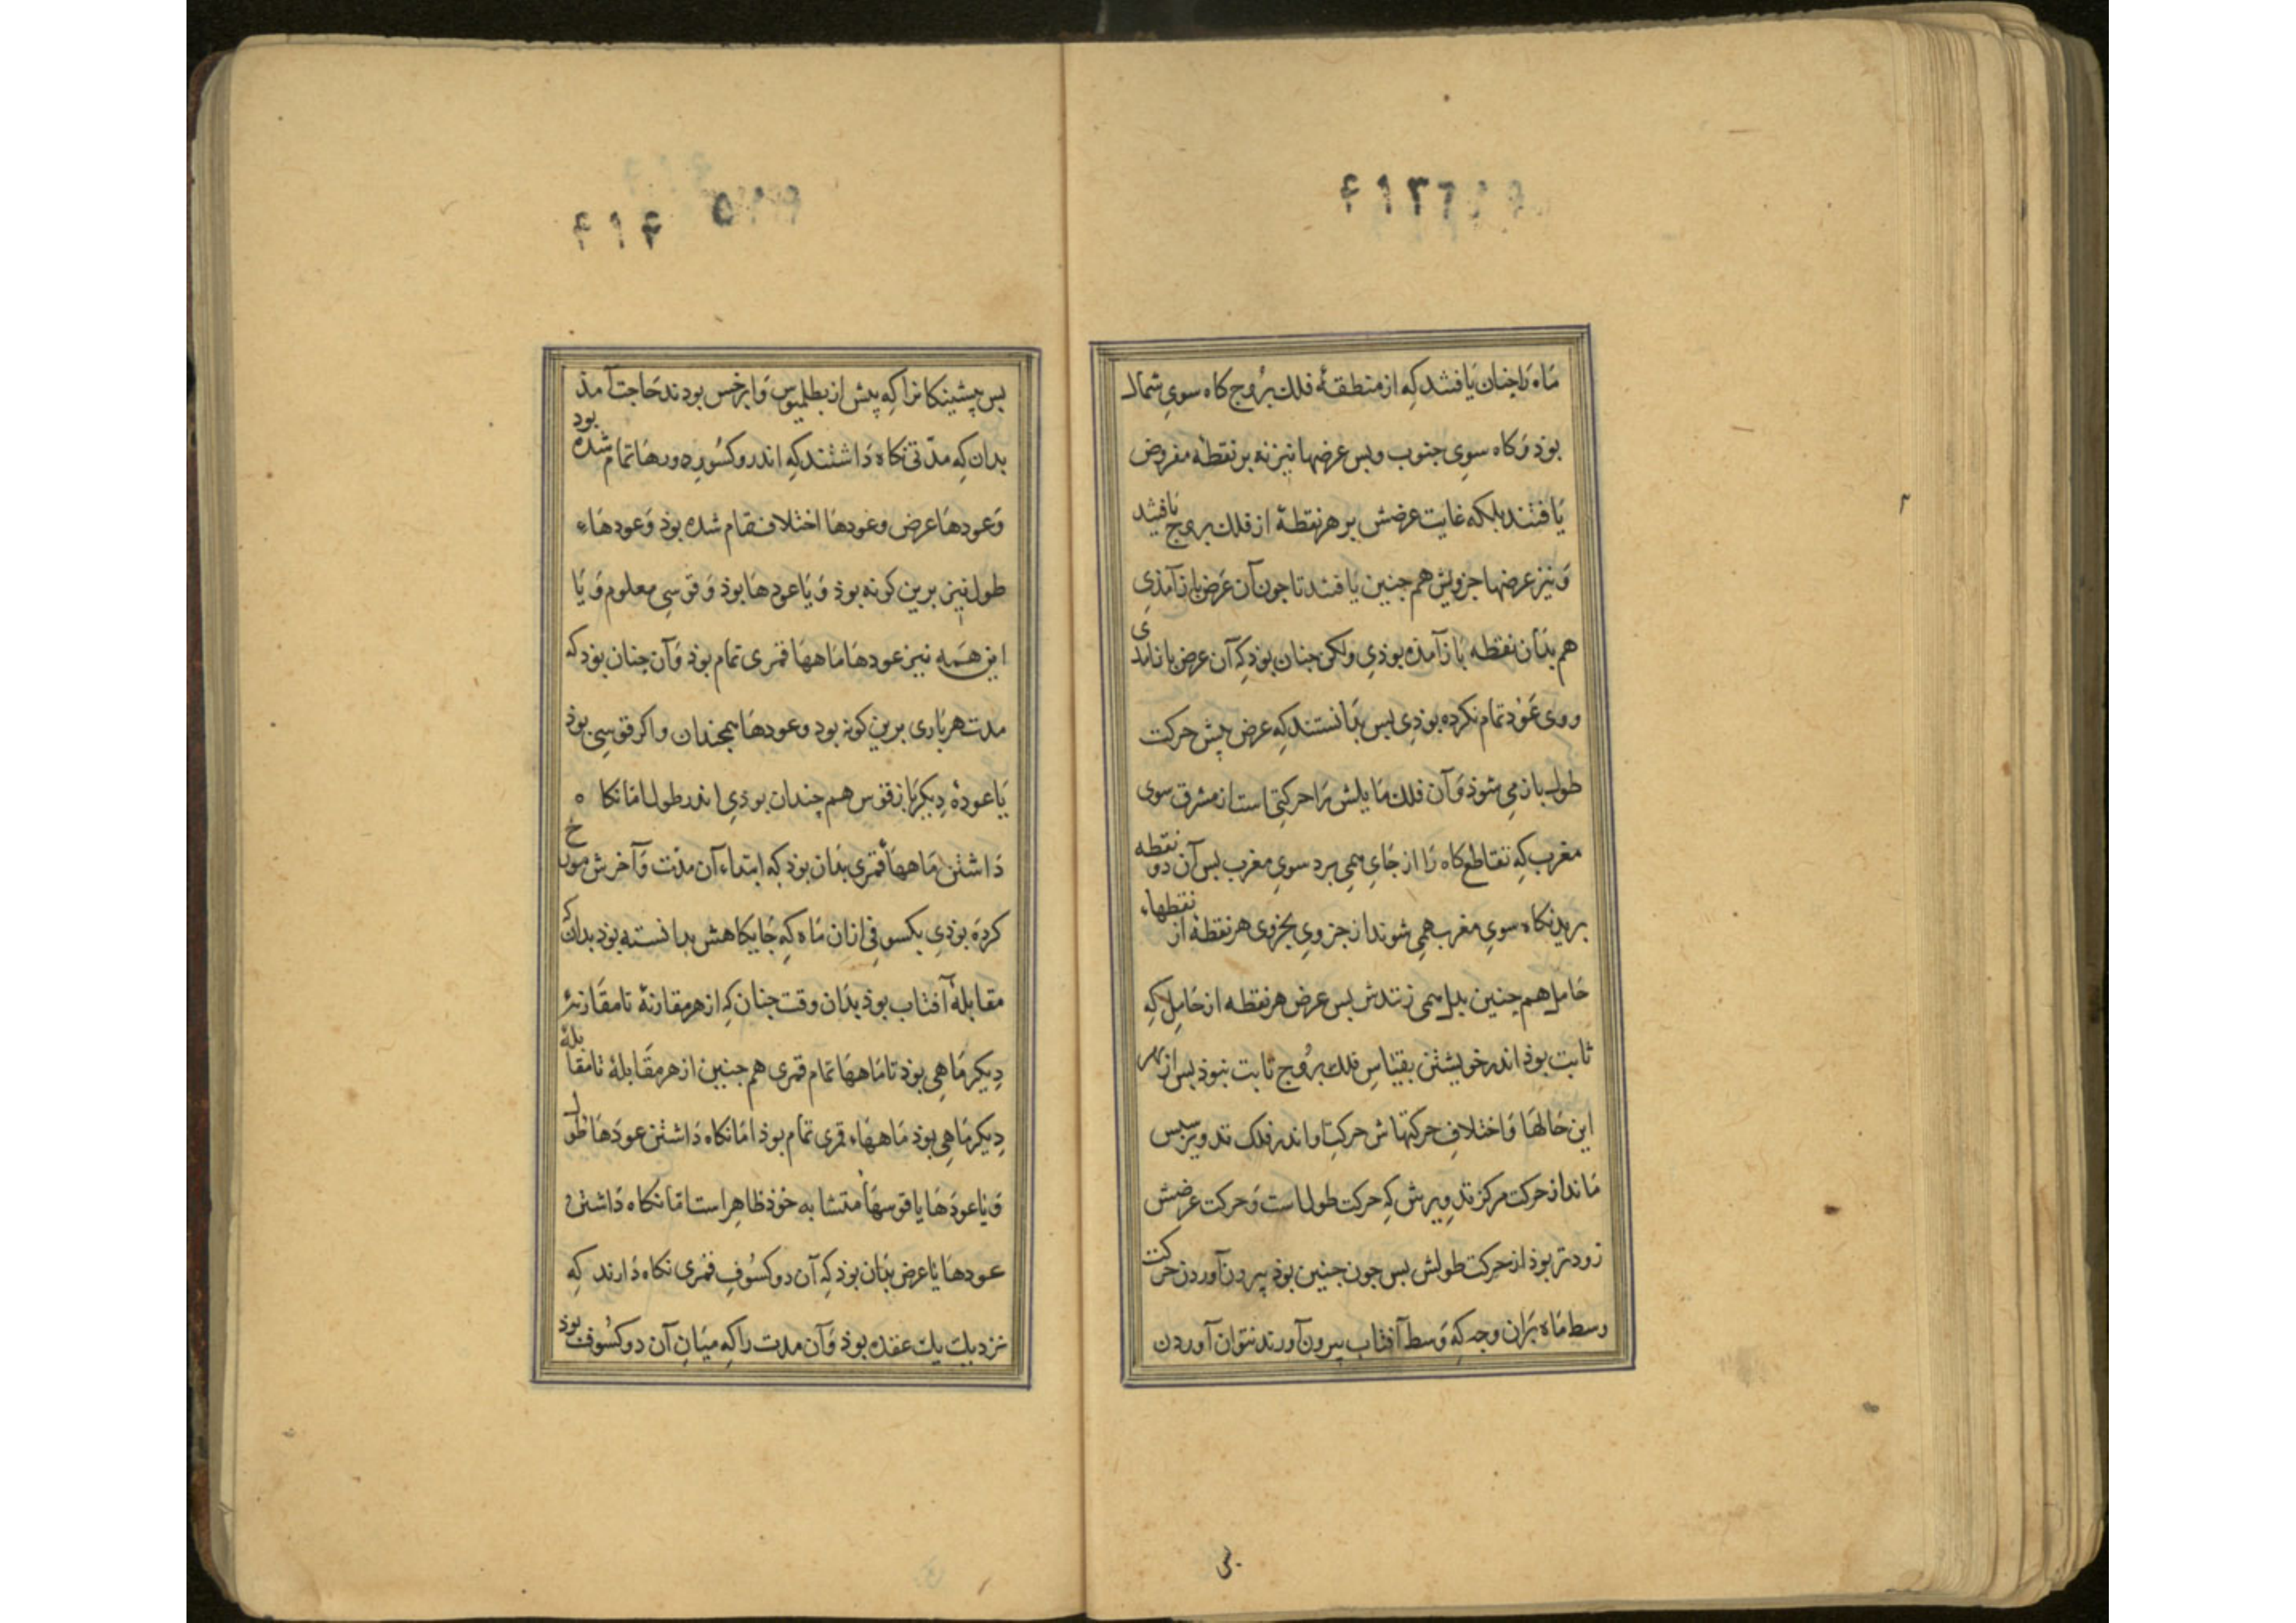 ماه را چنان یافتند که از منطقهٔ فلك بروج کاه سوی شمال
بوذ و کاه سوی جنوب و بس عرضها نیز نه بر نقطهٔ مفروض
یافتند بلکه غایت عرضش بر هر نقطهٔ از فلك بروج یافتند
و نیز عرضها جزویش هم جنین یافتند تا جون آن عرض باز آمذی
هم بذان نقطه باز آمذه بوذی ولکن جنان بوذ که آن عرض باز آمدی
و وی عود تمام نکرده بوذی بس بدانستند که عرض پیش حرکت
طول باز می شوذ و آن فلك مایلش را حرکتی است از مشرق سوی
مغرب که تقاطع کاه را از جای همی برد سوی مغرب بس آن دو نقطه
برین کاه سوی مغرب همی شوند از جزوی بجزوی هر نقطهٔ از نقطهاء
حامل هم جنین بدل همی زنندش بس عرض هر نقطه از حامل که
ثابت بوذ اندر خویشتن بقیاس فلك بروج ثابت نبوذ بس از بهر
این حالها و اختلاف حرکتهاش حرکت او اندر فلک تدویر سپس
ماند از حرکت مرکز تدویرش که حرکت طول است و حرکت عرضش
زودتر بوذ از حرکت طولش بس جون جنین بوذ بیرون آوردن حرکت
وسط ماه بران وجه که وسط آفتاب بیرون آورند نتوان آوردن
بس پیشینکانرا که پیش از بطلمیوس و ابرخس بودند حاجت آمذ
بدان که مدّتی نکاه داشتند که اندرو کسوف دورها تمام شده بود
و عودها عرض و عودها اختلاف تمام شده بوذ و عودهاء
طول نیز برین کونه بوذ و یا عودها بوذ و قوسی معلوم و یا
این همه نیز عودها ماهها قمری تمام بوذ و آن جنان بوذ که
مدت هر باری برین کونه بود و عودها همچندان و اکر قوسی بوذ
یا عودهٔ دیکر باز قوس هم چندان بوذی اندر طول اما نکاه
داشتن ماهها قمری بذان بوذ که ابتداء آن مدّت و آخرش مورخ
کرده بوذی بکسوفی ازان ماه که جایکاهش بدانسته بوذ بدانک
مقابلهٔ آفتاب بوذ بذان وقت جنان که از هر مقارنهٔ تا مقارنهٔ
دیکر ماهی بوذ تا ماهها تمام قمری هم جنین از هر مقابلهٔ تا مقابلهٔ
دیکر ماهی بوذ ماههاء قمری تمام بوذ اما نکاه داشتن عودها طول
و یا عودها یا قوسها متشابه خوذ ظاهر است اما نکاه داشتن
عودها یا عرض بذان بوذ که آن دو کسوف قمری نکاه دارند که
نزدیك یك عقده بوذ و آن مدت را که میان آن دو کسوف بوذ